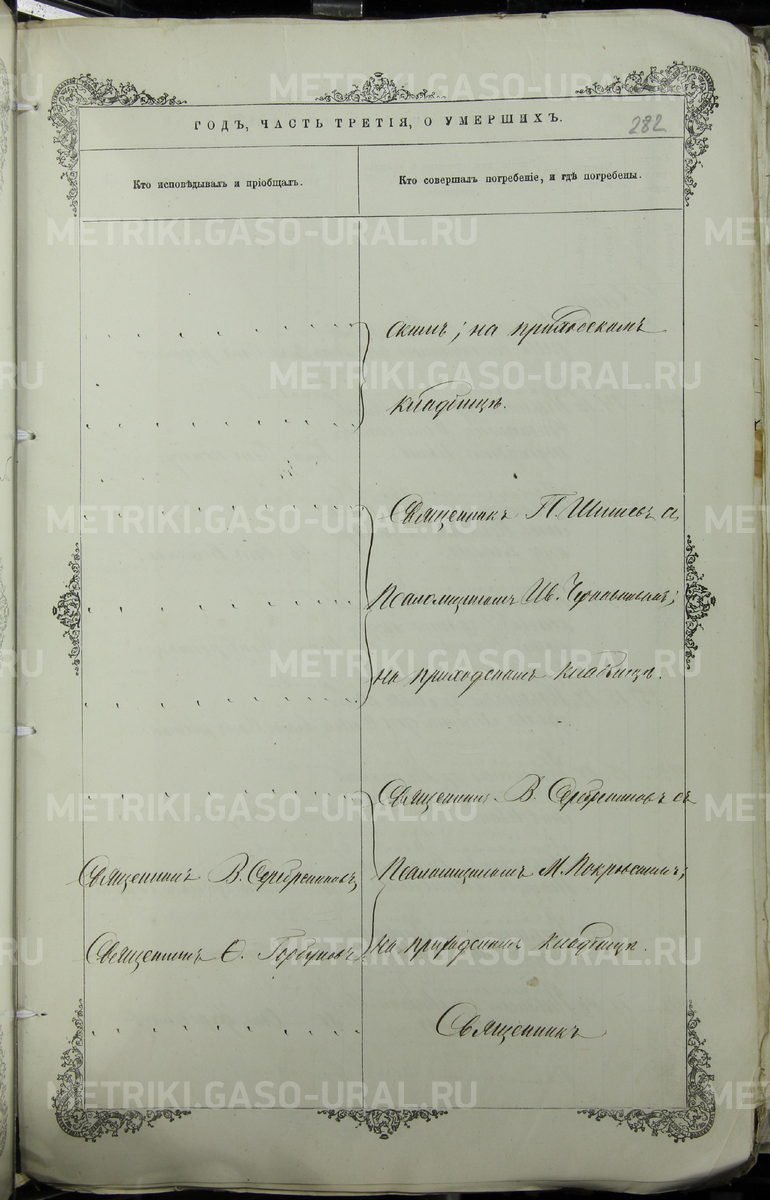 METRIKI.GASO-URAL.RU
ГОДЪ, ЧАСТЬ ТРЕТІЯ, О УМЕРШИХЪ.
282
Кто исповѣдывалъ и пріобщалъ.
Кто совершалъ погребеніе, и гдѣ погребены.
скимъ; на приходскомъ
кладбищѣ.
Священникъ П. съ
Псаломщикомъ Ив.
на приходскомъ кладбищѣ.
Священникъ В. Серебренниковъ съ
Священникъ В. Серебренниковъ,
Псаломщикомъ М. Покровскимъ;
Священникъ Горбуновъ
на приходскомъ кладбищѣ.
Священникъ